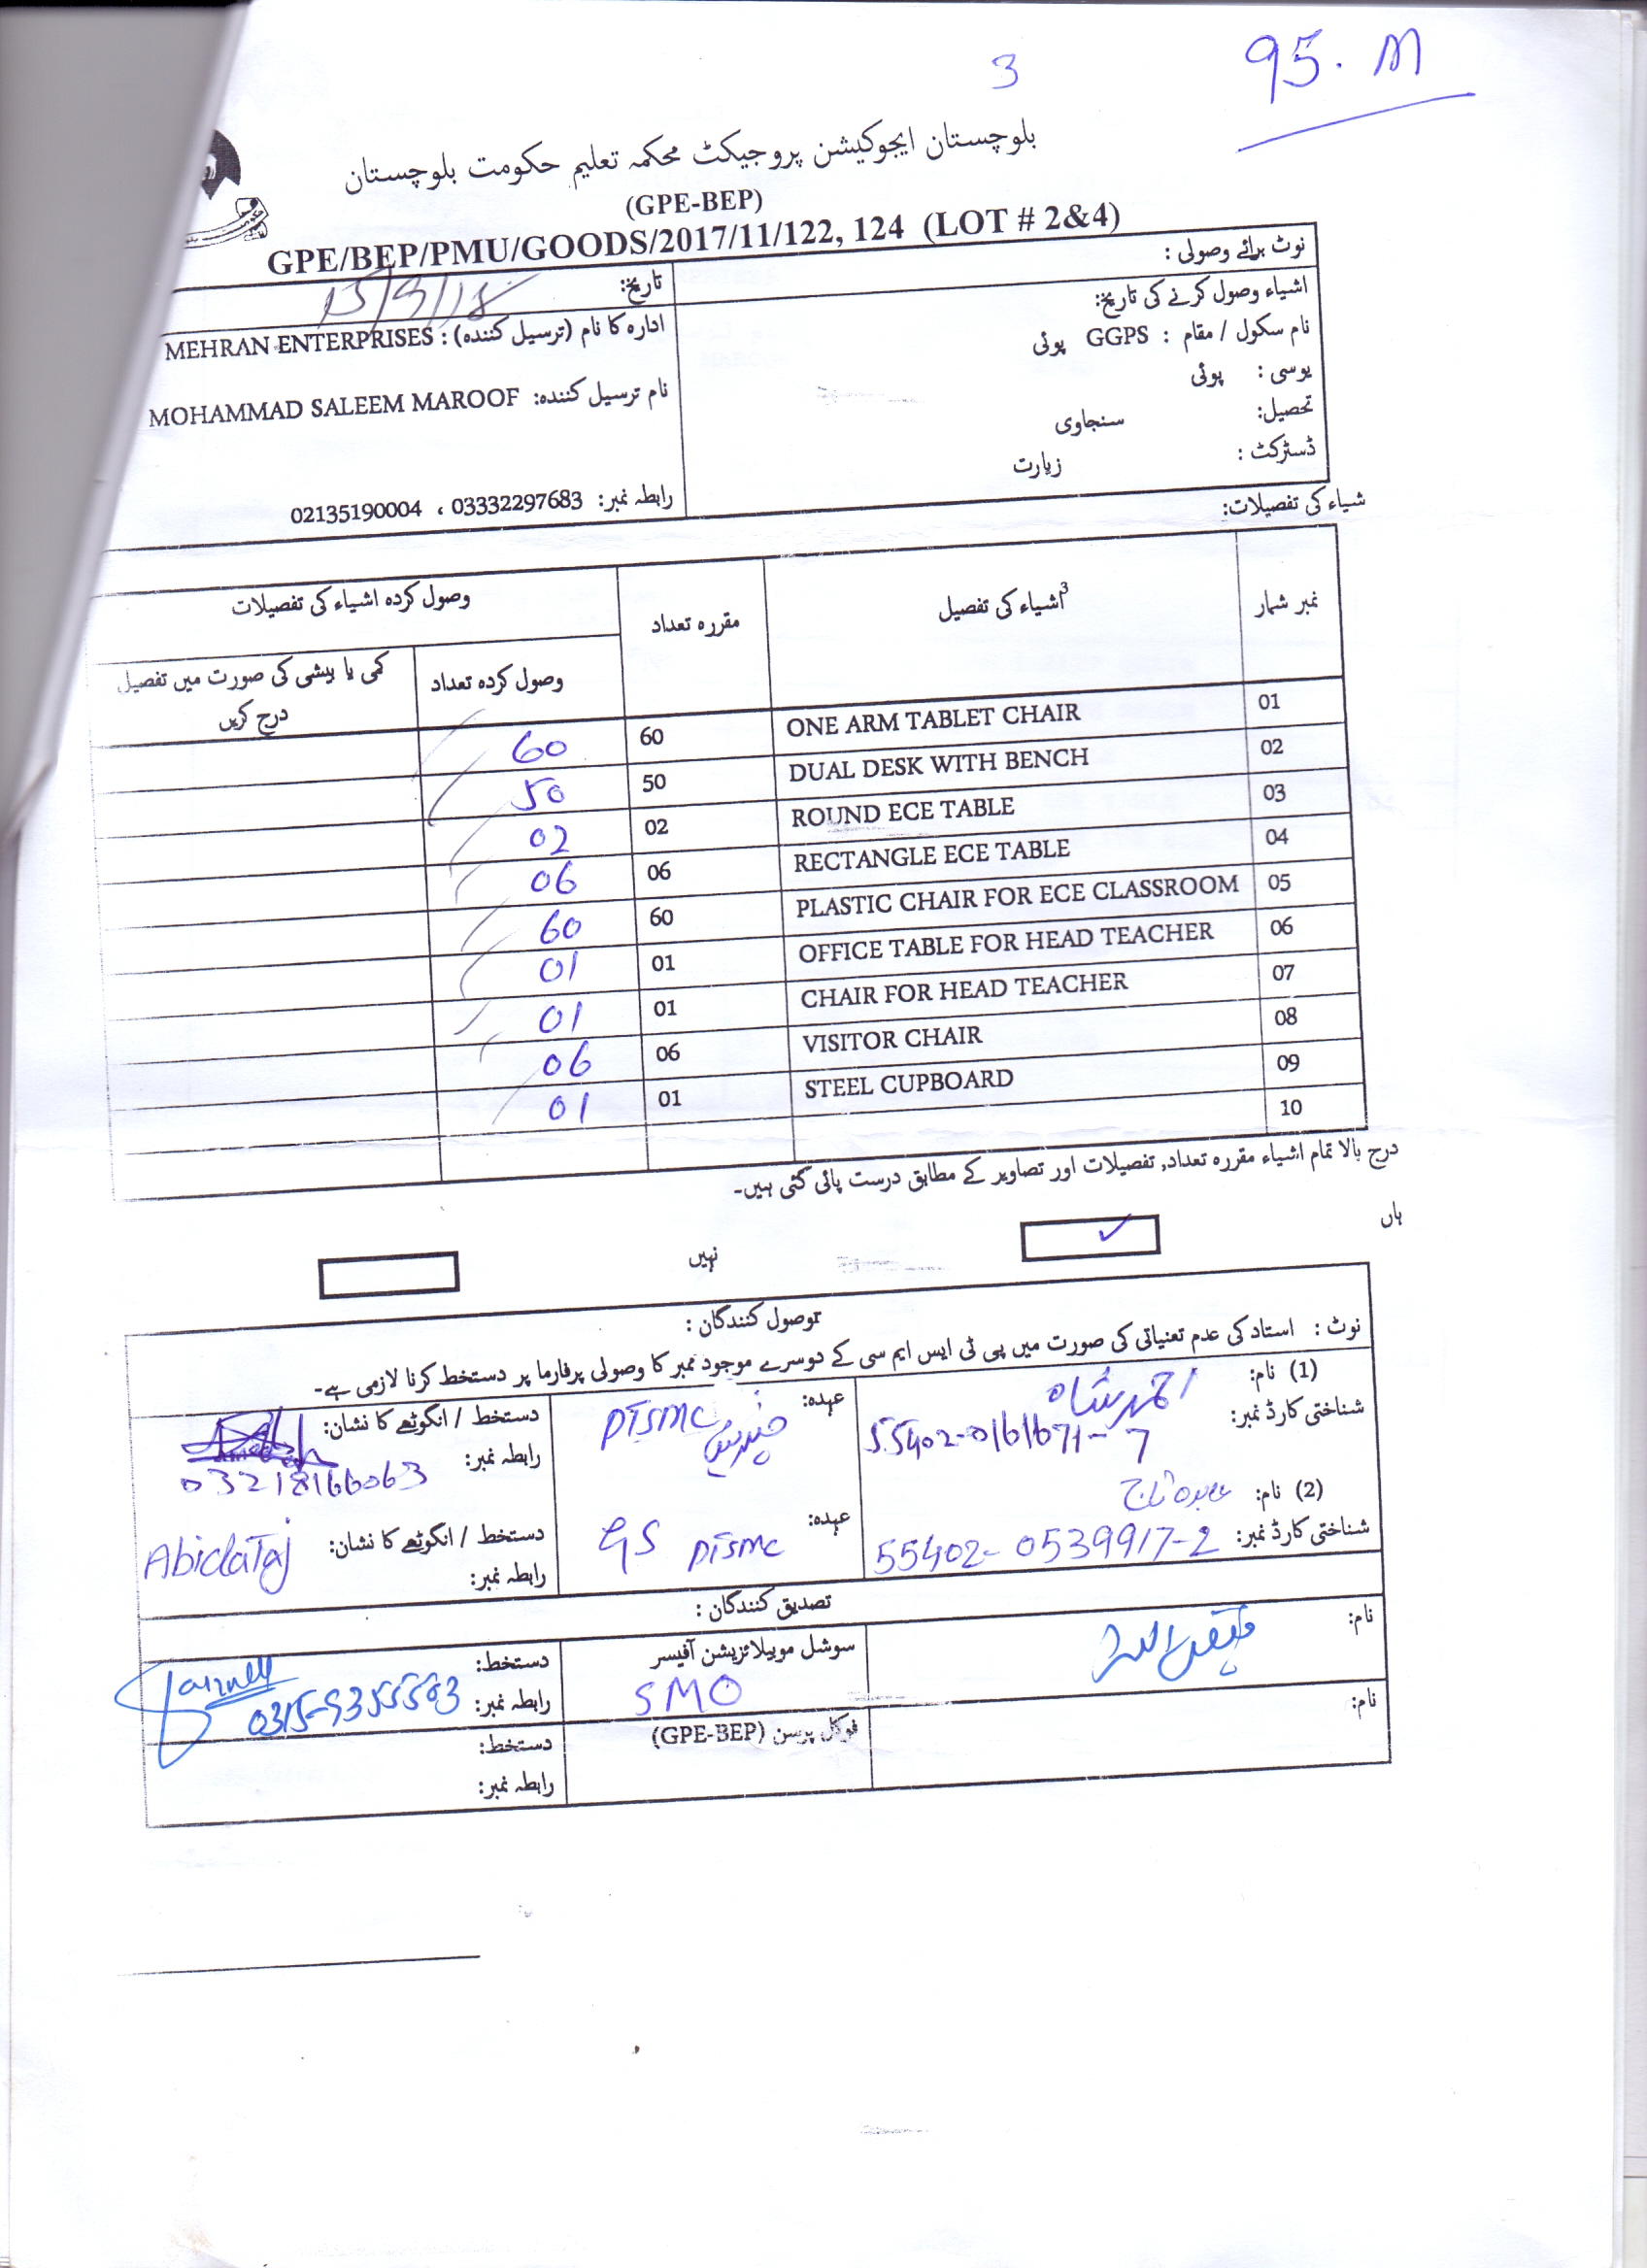 3
95. M
بلوچستان ایجوکیشن پروجیکٹ محکمہ تعلیم حکومت بلوچستان
(GPE-BEP)
GPE/BEP/PMU/GOODS/2017/11/122, 124 (LOT # 2&4)
نوٹ برائے وصولی :
اشیاء وصول کرنے کی تاریخ:
نام سکول / مقام : GGPS پوئی
یوسی : پوئی
تحصیل: سنجاوی
ڈسٹرکٹ : زیارت
تاریخ: 15/9/18
ادارہ کا نام (ترسیل کنندہ) : MEHRAN ENTERPRISES
نام ترسیل کنندہ: MOHAMMAD SALEEM MAROOF
رابطہ نمبر: 03332297683 ، 02135190004
شیاء کی تفصیلات:
نمبر شمار 3اشیاء کی تفصیل مقررہ تعداد وصول کردہ اشیاء کی تفصیلات
وصول کردہ تعداد کمی یا بیشی کی صورت میں تفصیل
درج کریں
01 ONE ARM TABLET CHAIR 60 60
02 DUAL DESK WITH BENCH 50 50
03 ROUND ECE TABLE 02 02
04 RECTANGLE ECE TABLE 06 06
05 PLASTIC CHAIR FOR ECE CLASSROOM 60 60
06 OFFICE TABLE FOR HEAD TEACHER 01 01
07 CHAIR FOR HEAD TEACHER 01 01
08 VISITOR CHAIR 06 06
09 STEEL CUPBOARD 01 01
10
درج بالا تمام اشیاء مقررہ تعداد, تفصیلات اور تصاویر کے مطابق درست پائی گئی ہیں۔
ہاں ✓ نہیں
توصول کنندگان :
نوٹ : استاد کی عدم تعنیاتی کی صورت میں پی ٹی ایس ایم سی کے دوسرے موجود نمبر کا وصولی پرفارما پر دستخط کرنا لازمی ہے۔
(1) نام: احمد شاہ عہدہ: PTSMC دستخط / انگوٹھے کا نشان:
شناختی کارڈ نمبر: 55402-0161671-7 رابطہ نمبر: 03218166063
(2) نام: عابدہ تاج عہدہ: GS PTSMC دستخط / انگوٹھے کا نشان: AbidaTaj
شناختی کارڈ نمبر: 55402-0539917-2 رابطہ نمبر:
تصدیق کنندگان :
نام: سوشل موبیلائزیشن آفیسر دستخط:
SMO رابطہ نمبر: 0315-9355503
نام: فوکل پرسن (GPE-BEP) دستخط:
رابطہ نمبر: